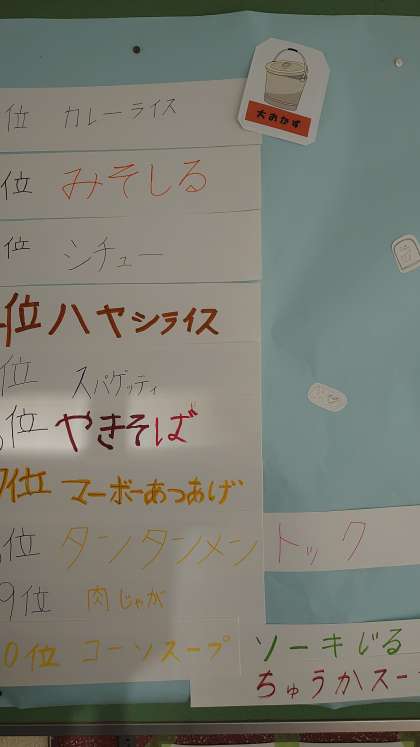 大おかず
位 カレーライス
位 みそしる
位 シチュー
位 ハヤシライス
位 スパゲッティ
位 やきそば
7位 マーボーあつあげ
位 タンタンメン トック
9位 肉じゃが
0位 コーンスープ ソーキじる
ちゅうかスー